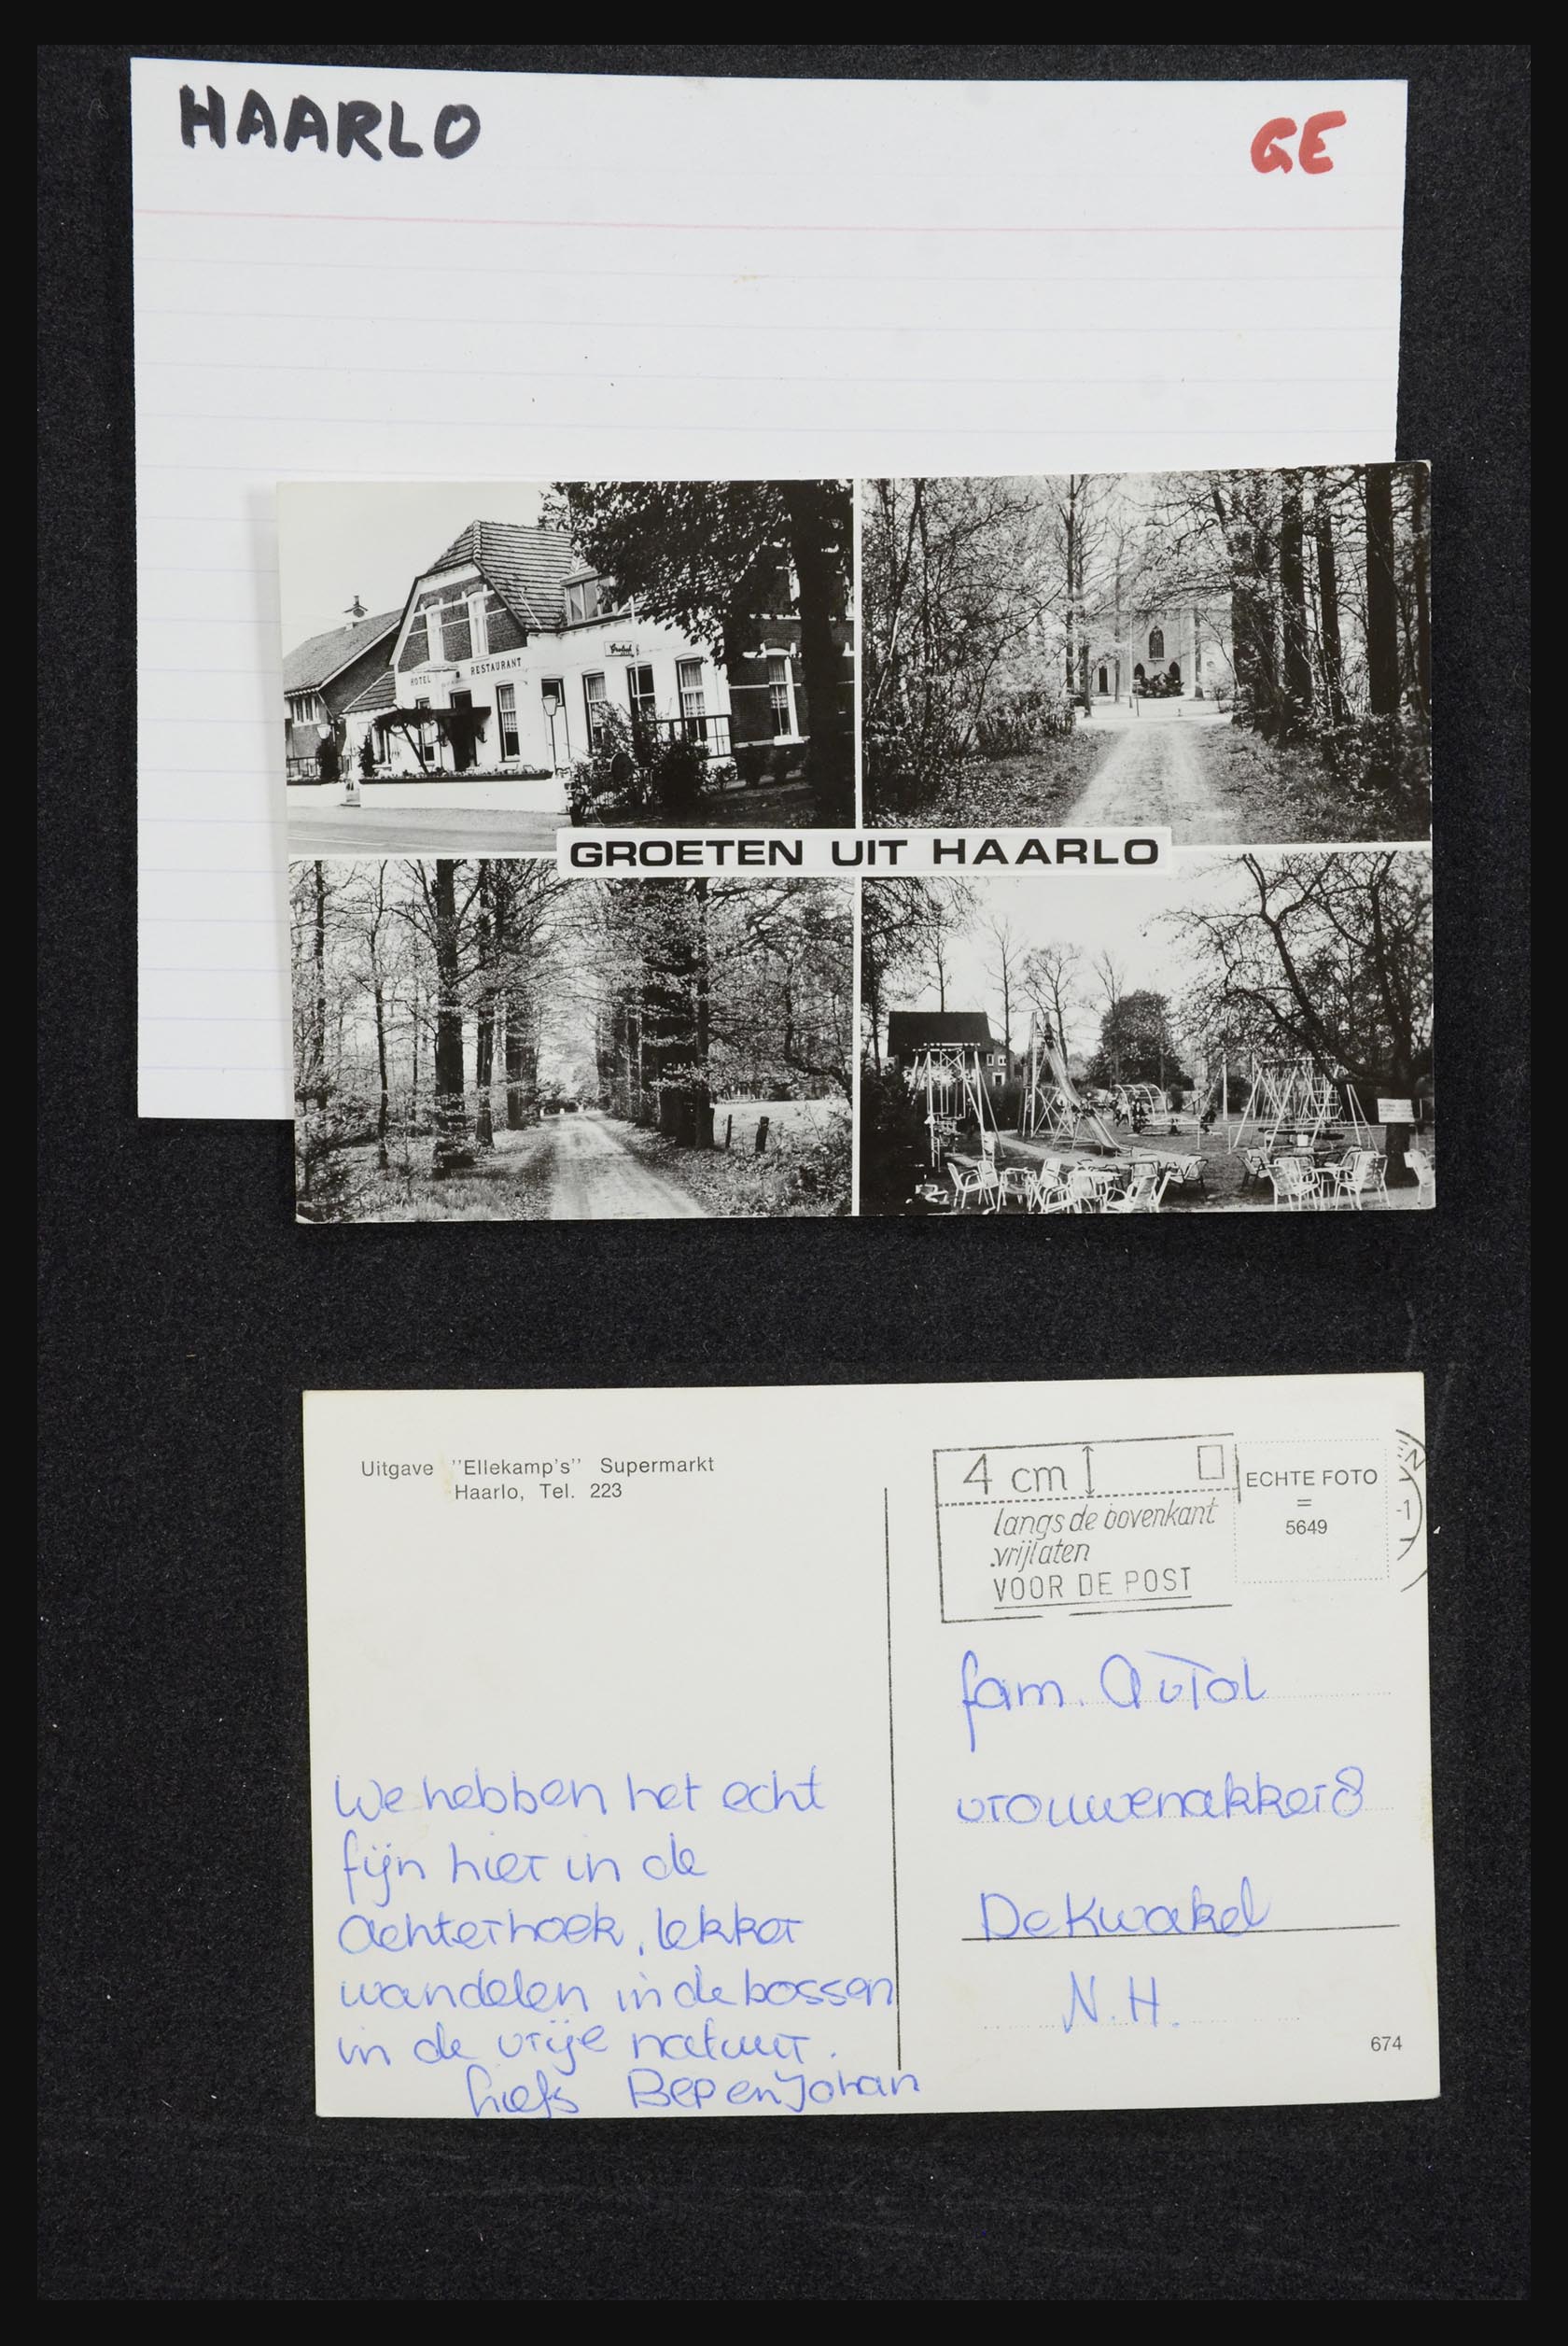 HAARLO
GE
HOTEL RESTAURANT
Grolsch
GROETEN UIT HAARLO
Uitgave "Ellekamp's" Supermarkt
Haarlo, Tel. 223
4 cm
langs de bovenkant
vrijlaten
VOOR DE POST
ECHTE FOTO
=
5649
-1
fam. A v Tol
vrouwenakker 8
De Kwakel
N.H.
674
We hebben het echt
fijn hier in de
achterhoek, lekker
wandelen in de bossen
in de vrije natuur.
liefs Bep en Johan